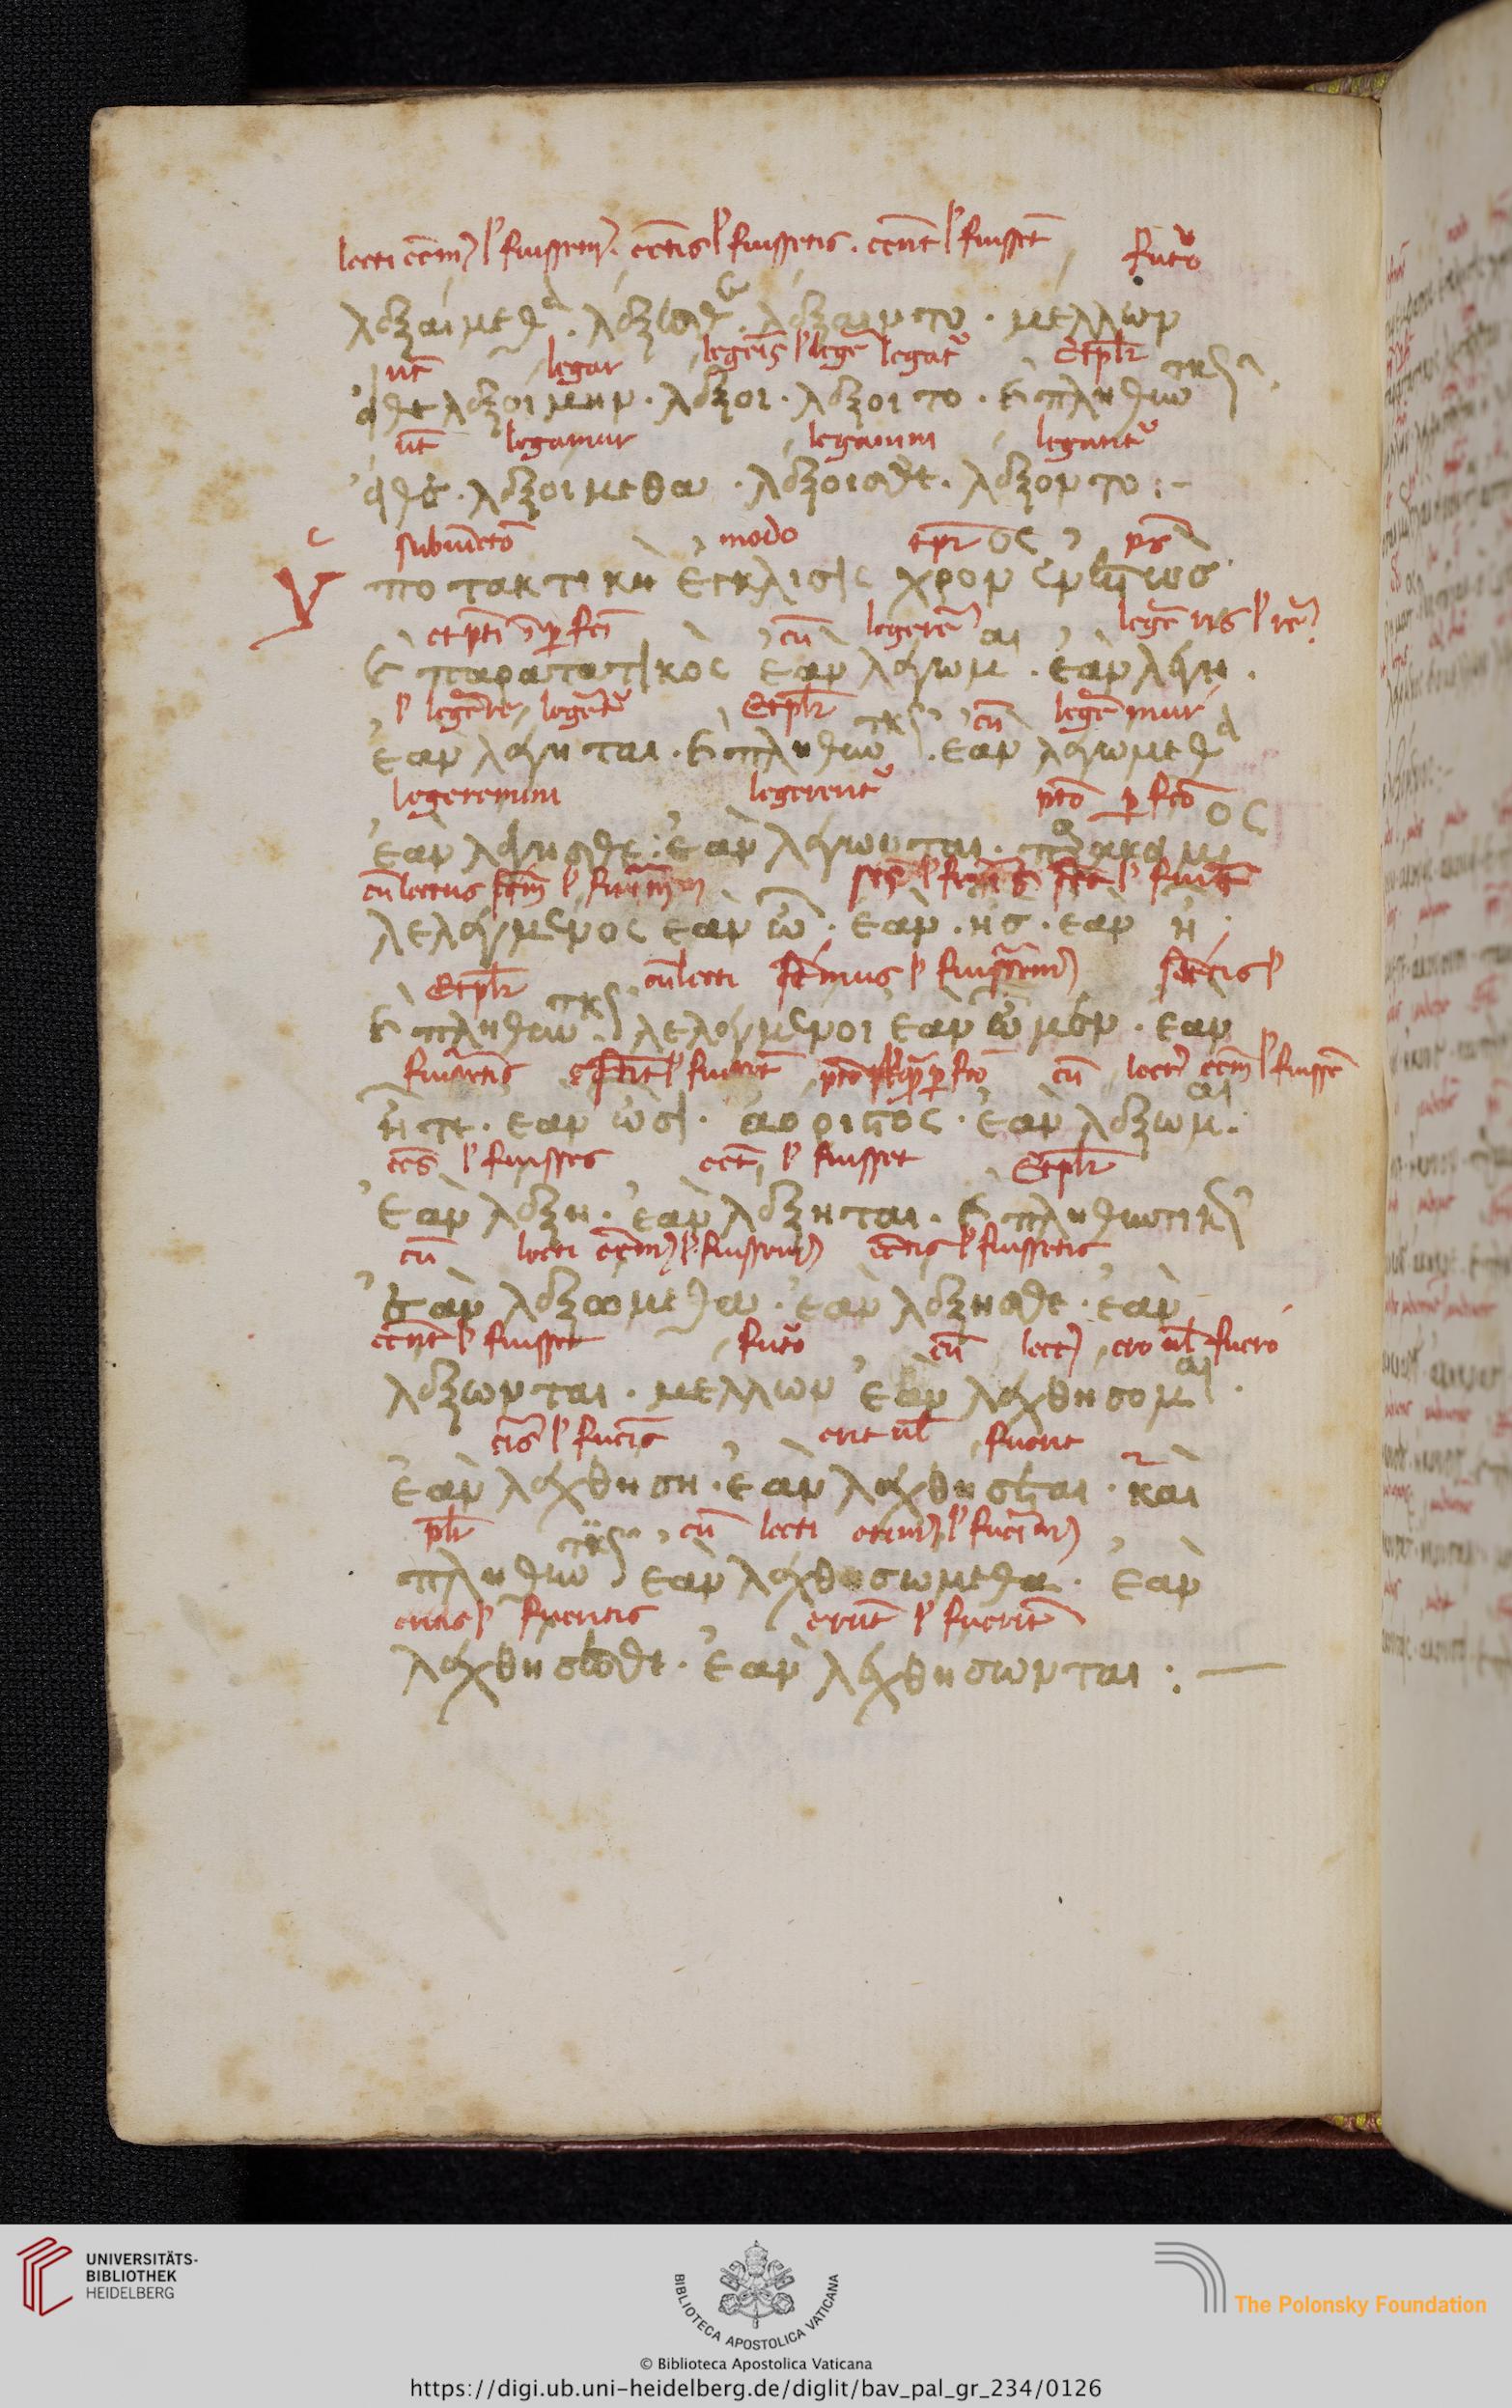 lecti eēm l' fuissem. eētis l' fuissetis. eent̄ l' fuisset̄ futo
λεξαίμεθα. λέξαισθε. λέξαιντο. μέλλων
ut̄ legar legeris l' lege legatᷣ Et plr̄
εἴθε λεξοίμην. λέξοι. λέξοιτο. κ πληθυντικῶς
ut̄ legamur legamini legantᷣ
εἴθε. λεξοίμεθα. λέξοισθε. λέξοιντο:-
subiūcto modo tpr ps̄
Ὑποτακτικὴ ἔγκλισις χρόνος ἐνεστὼς
et pti īperfcī cū legerer legereris l' re
κ παρατατικὸς ἐὰν λέγωμαι. ἐὰν λέγη.
l' legere legeretᷣ Et plr̄ cū legeremur
ἐὰν λέγηται. κ πληθυντικῶς. ἐὰν λεγώμεθα
legeremini legerentᷣ pto perfcto
ἐὰν λέγησθε: ἐὰν λέγωνται. παρακείμενος
cū lectus sim l' fuerim
λελεγμένος ἐὰν ὦ. ἐὰν. ἦς. ἐὰν ἦ:
Et plr̄ cū lecti simus l'
κ πληθυντικῶς λελεγμένοι ἐὰν ὦμεν. ἐὰν
fueritis sint l' fuerint pto plusq̄perfcto cū lectᷣ eēm l' fuissē
ἦτε. ἐὰν ὦσι. ἀόριστος. ἐὰν λέξωμαι:
eēs l' fuisses eēt l' fuisset Et plr̄
Ἐὰν λέξη. ἐὰν λέξηται. κ πληθυντικῶς
cū lecti eēm l' fuissem eētis l' fuissetis
ἐὰν λεξώμεθα. ἐὰν λέξησθε. ἐὰν
eēnt l' fuisset futo cū lectᷣ ero ul̄ fuero
λέξωνται. μέλλων ἐὰν λεχθήσομαι.
eris l' fueris erit ul̄ fuerit
ἐὰν λεχθήση. ἐὰν λεχθήσεται. καὶ
plr̄ cū lecti erim l' fuerim
πληθυντικῶς ἐὰν λεχθησώμεθα. ἐὰν
eritis l' fueritis erūt l' fuerit̄
λεχθήσεσθε. ἐὰν λεχθήσωνται:—
UNIVERSITÄTS-
BIBLIOTHEK
HEIDELBERG
BIBLIOTECA APOSTOLICA VATICANA
The Polonsky Foundation
© Biblioteca Apostolica Vaticana
https://digi.ub.uni-heidelberg.de/diglit/bav_pal_gr_234/0126